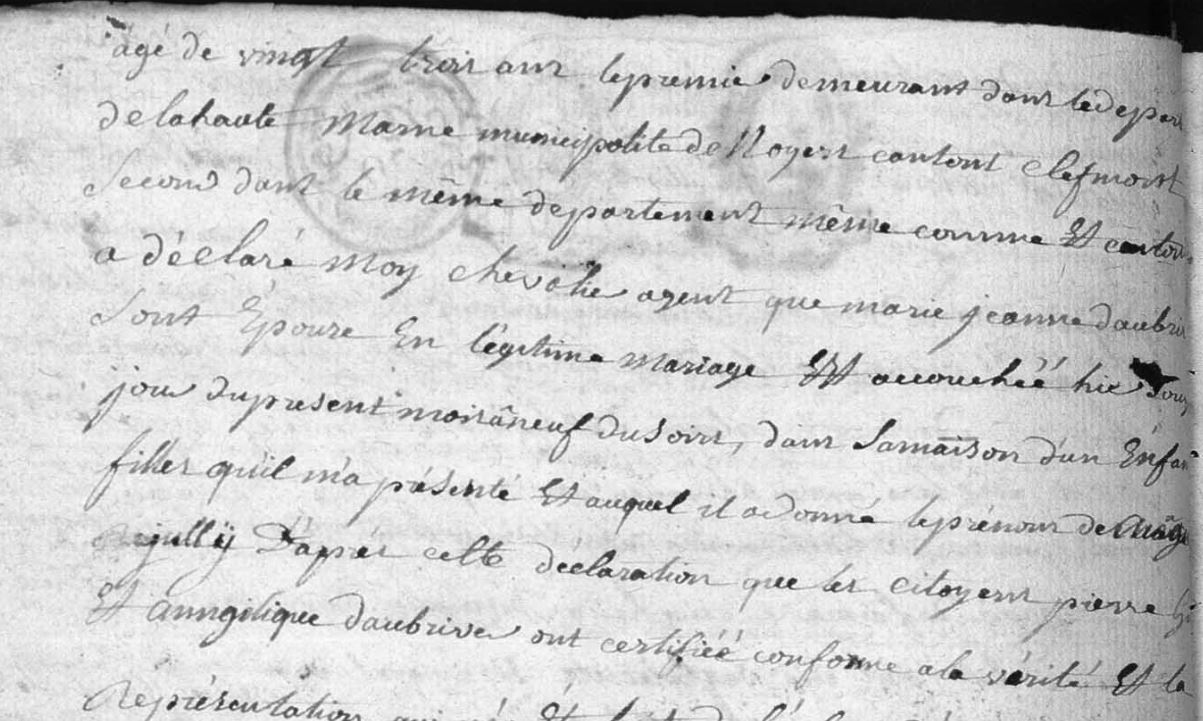 agé de vingt trois ans le premie demeurant dans le depar
de la haute Marne municipalite de Noyers cantont Clefmont
Second dans le même departement même comme Et canton
a déclaré Moy chevalie agent que marie jeanne daubri
Sont Épouze En légitime Mariage Est accouchéé hie
jour du present mois à neuf du soirs, dans Sa maison d'un Enfan
filles qu'il m'a présenté Et auquel il a donné le prénom de
D'après cette déclaration que les citoyens pierre
Et anngélique daubrive ont certifiéé conforme a la vérité Et la
Représentation